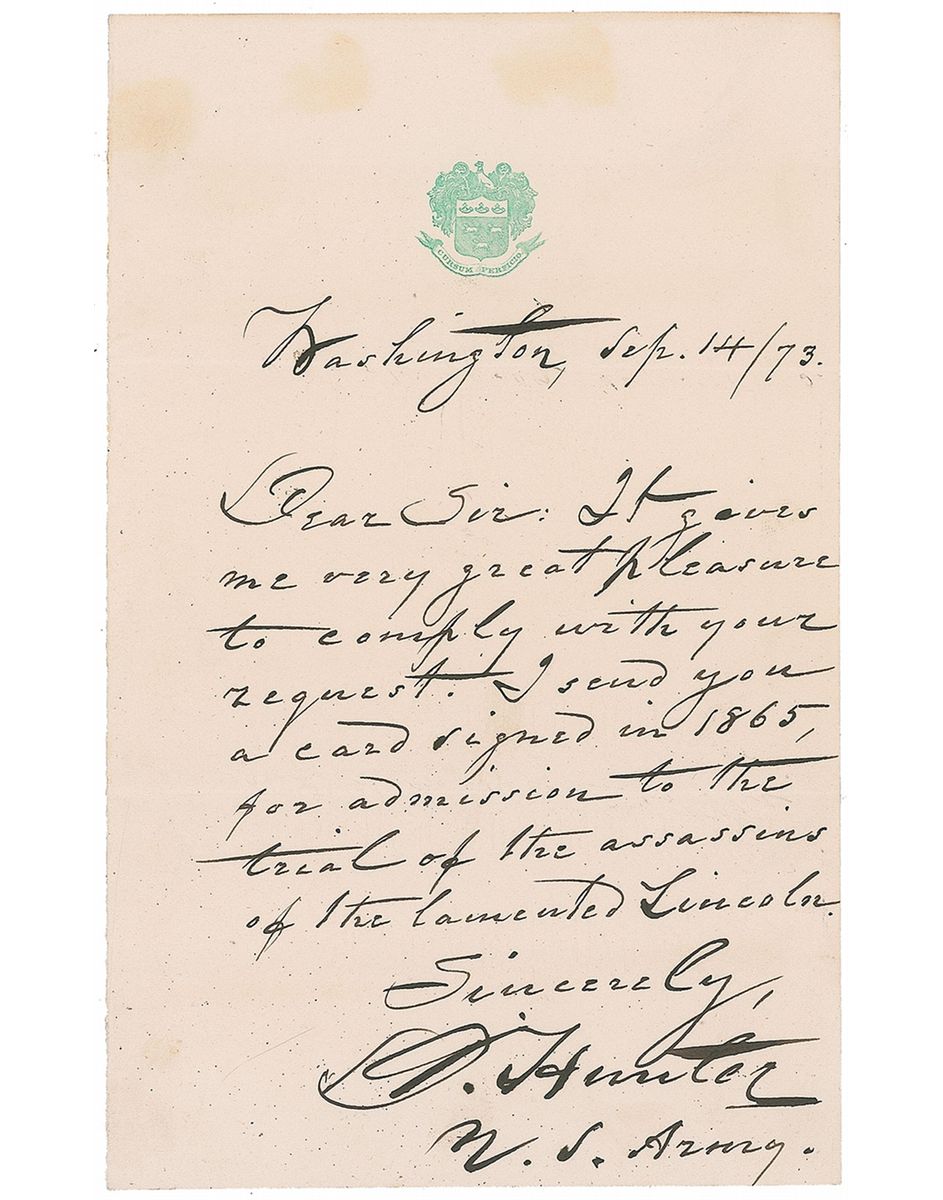 CURSUM PERFICIO
Washington, Sep. 14/73.
Dear Sir: It gives
me very great pleasure
to comply with your
request. I send you
a card signed in 1865,
for admission to the
trial of the assassins
of the lamented Lincoln.
Sincerely,
D. Hunter
U. S. Army.